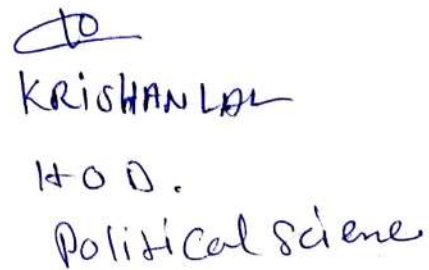 to
KRISHANLAL
HOD.
Political Science